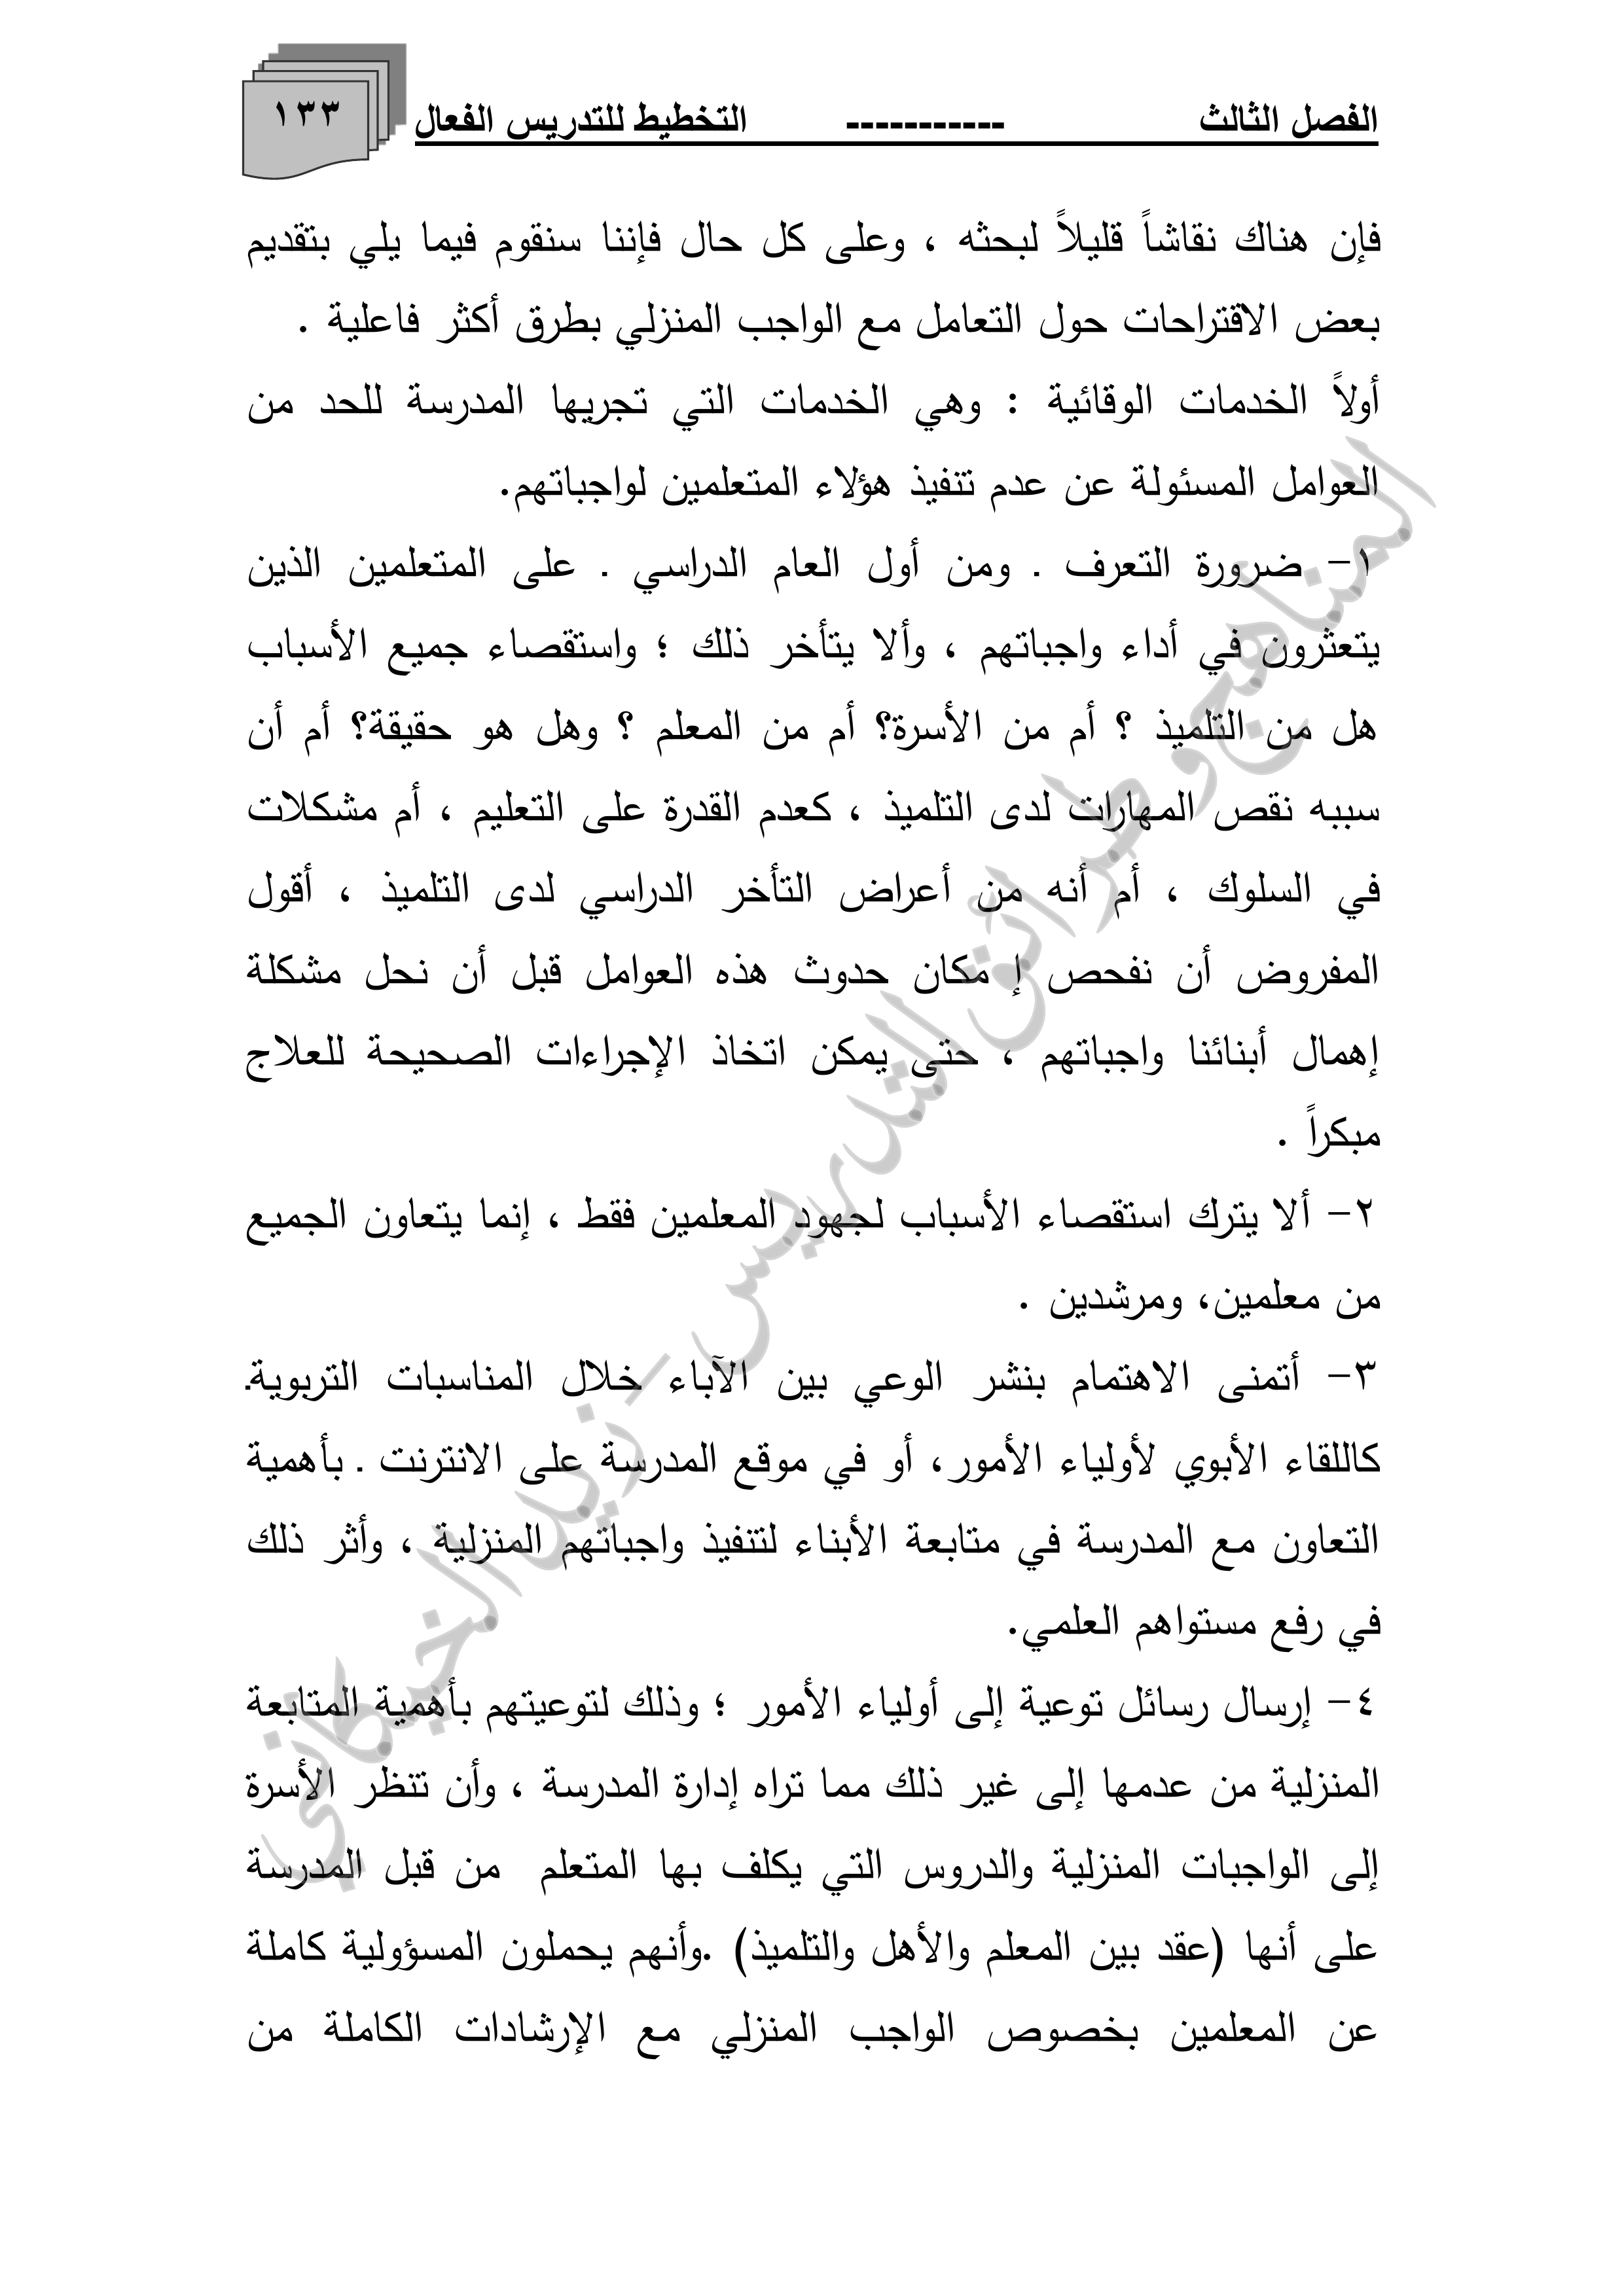 الفصل الثالث ----------- التخطيط للتدريس الفعال ١٣٣
فإن هناك نقاشاً قليلاً لبحثه ، وعلى كل حال فإننا سنقوم فيما يلي بتقديم
بعض الاقتراحات حول التعامل مع الواجب المنزلي بطرق أكثر فاعلية .
أولاً الخدمات الوقائية : وهي الخدمات التي تجريها المدرسة للحد من
العوامل المسئولة عن عدم تنفيذ هؤلاء المتعلمين لواجباتهم.
١- ضرورة التعرف . ومن أول العام الدراسي . على المتعلمين الذين
يتعثرون في أداء واجباتهم ، وألا يتأخر ذلك ؛ واستقصاء جميع الأسباب
هل من التلميذ ؟ أم من الأسرة؟ أم من المعلم ؟ وهل هو حقيقة؟ أم أن
سببه نقص المهارات لدى التلميذ ، كعدم القدرة على التعليم ، أم مشكلات
في السلوك ، أم أنه من أعراض التأخر الدراسي لدى التلميذ ، أقول
المفروض أن نفحص إ مكان حدوث هذه العوامل قبل أن نحل مشكلة
إهمال أبنائنا واجباتهم ، حتى يمكن اتخاذ الإجراءات الصحيحة للعلاج
مبكراً .
٢- ألا يترك استقصاء الأسباب لجهود المعلمين فقط ، إنما يتعاون الجميع
من معلمين، ومرشدين .
٣- أتمنى الاهتمام بنشر الوعي بين الآباء خلال المناسبات التربوية.
كاللقاء الأبوي لأولياء الأمور، أو في موقع المدرسة على الانترنت . بأهمية
التعاون مع المدرسة في متابعة الأبناء لتنفيذ واجباتهم المنزلية ، وأثر ذلك
في رفع مستواهم العلمي.
٤- إرسال رسائل توعية إلى أولياء الأمور ؛ وذلك لتوعيتهم بأهمية المتابعة
المنزلية من عدمها إلى غير ذلك مما تراه إدارة المدرسة ، وأن تنظر الأسرة
إلى الواجبات المنزلية والدروس التي يكلف بها المتعلم من قبل المدرسة
على أنها (عقد بين المعلم والأهل والتلميذ) .وأنهم يحملون المسؤولية كاملة
عن المعلمين بخصوص الواجب المنزلي مع الإرشادات الكاملة من
المناهج وطرائق التدريس - زيد الخيكاني